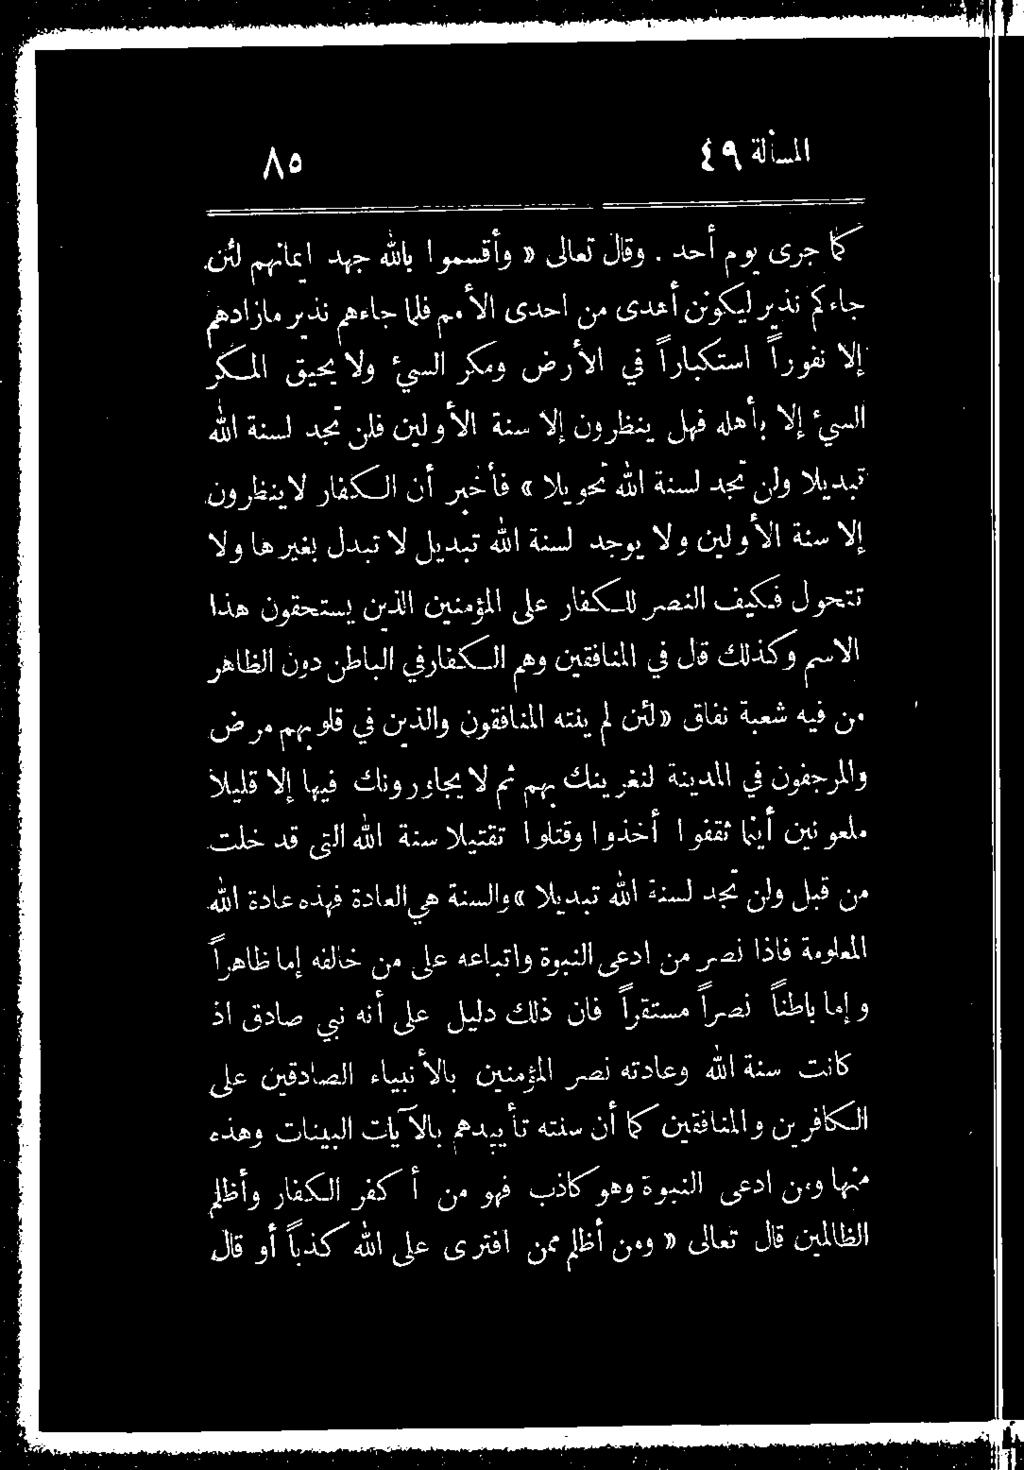 المسألة ٤٩
٨٥
كما جرى يوم أحد . وقال تعالى « وأقسموا بالله جهد ايمانهم لئن
جاءكم نذير ليكونن أهدى من احدى الأمم فلما جاءهم نذير مازادهم
إلا نفوراً استكباراً في الأرض ومكر السيء ولا يحيق المكر
السيء إلا بأهله فهل ينظرون إلا سنة الأولين فلن تجد لسنة الله
تبديلا ولن تجد لسنة الله تحويلا » فأخبر أن الكفار لاينظرون
إلا سنة الأولين ولا يوجد لسنة الله تبديل لا تبدل بغيرها ولا
تتحول فكيف النصر للكفار على المؤمنين الذين يستحقون هذا
الاسم وكذلك قال في المنافقين وهم الكفارفي الباطن دون الظاهر
من فيه شعبة نفاق «لئن لم ينته المنافقون والذين في قلوبهم مرض
والمرجفون في المدينة لنغرينك بهم ثم لا يجاورونك فيها إلا قليلا
ملعونين أينما ثقفوا أخذوا وقتلوا تقتيلا سنة الله التى قد خلت
من قبل ولن تجد لسنة الله تبديلا »والسنة هي العادة فهذه عادة الله
المعلومة فاذا نصر من ادعى النبوة واتباعه على من خالفه إما ظاهراً
وإما باطناً نصراً مستقراً فان ذلك دليل على أنه نبي صادق اذ
كانت سنة الله وعادته نصر المؤمنين بالأنبياء الصادقين على
الكافرين والمنافقين كما أن سنته تأييدهم بالآيات البينات وهذه
منها ومن ادعى النبوة وهو كاذب فهو من أكفر الكفار وأظلم
الظالمين قال تعالى « ومن أظلم ممن افترى على الله كذباً أو قال